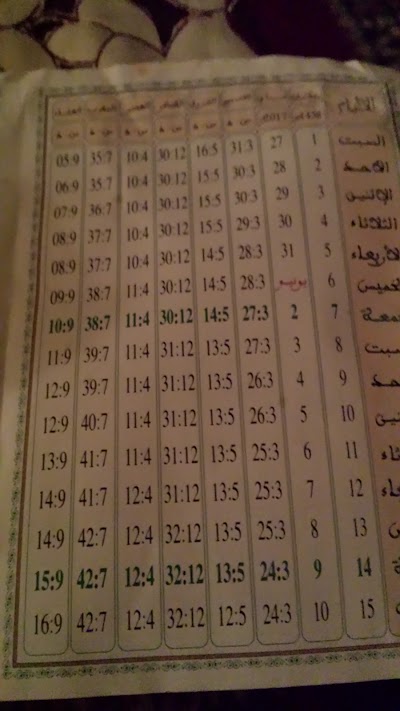 الأيام رمضان مـاي الصبح الشروق الظهر العصر المغرب العشاء
2017
السبت 1 27 31:3 16:5 30:12 10:4 35:7 05:9
الأحد 2 28 30:3 15:5 30:12 10:4 35:7 06:9
الإثنين 3 29 30:3 15:5 30:12 10:4 36:7 07:9
الثلاثاء 4 30 29:3 15:5 30:12 10:4 37:7 08:9
الأربعاء 5 31 28:3 14:5 30:12 10:4 37:7 08:9
خميس 6 يونيو 28:3 14:5 30:12 11:4 38:7 09:9
معة 7 2 27:3 14:5 30:12 11:4 38:7 10:9
سبت 8 3 27:3 13:5 31:12 11:4 39:7 11:9
حد 9 4 26:3 13:5 31:12 11:4 39:7 12:9
نين 10 5 26:3 13:5 31:12 11:4 40:7 12:9
ثاء 11 6 25:3 13:5 31:12 11:4 41:7 13:9
عاء 12 7 25:3 13:5 31:12 12:4 41:7 14:9
13 8 25:3 13:5 32:12 12:4 42:7 14:9
14 9 24:3 13:5 32:12 12:4 42:7 15:9
15 10 24:3 12:5 32:12 12:4 42:7 16:9